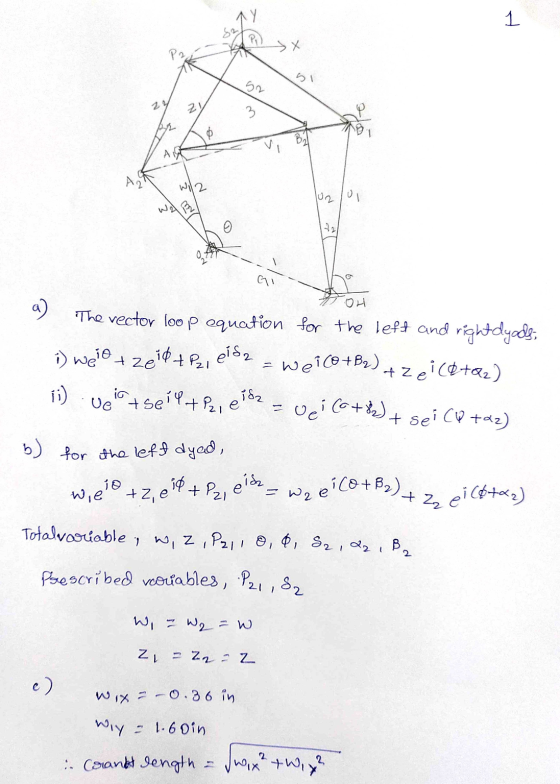 1
Y
X
δ2
P1
P2
S1
S2
3
Z2
Z1
α2
φ
A1
V1
B2
P
B1
A2
W1 2
W2
β2
θ
O2
U2
U1
γ2
1
G1
σ
O4
a) The vector loop equation for the left and right dyads.
i) we^iθ + ze^iφ + P21 e^iδ2 = we^i(θ+β2) + z e^i(φ+α2)
ii) ue^iσ + se^iψ + P21 e^iδ2 = ue^i(σ+γ2) + se^i(ψ+α2)
b) for the left dyad,
w1e^iθ + z1e^iφ + P21 e^iδ2 = w2 e^i(θ+β2) + z2 e^i(φ+α2)
Total variable, w, z, P21, θ, φ, δ2, α2, β2
Prescribed variables, P21, δ2
w1 = w2 = w
z1 = z2 = z
c) w1x = -0.36 in
w1y = 1.60in
∴ Crank length = √w1x² + w1y²